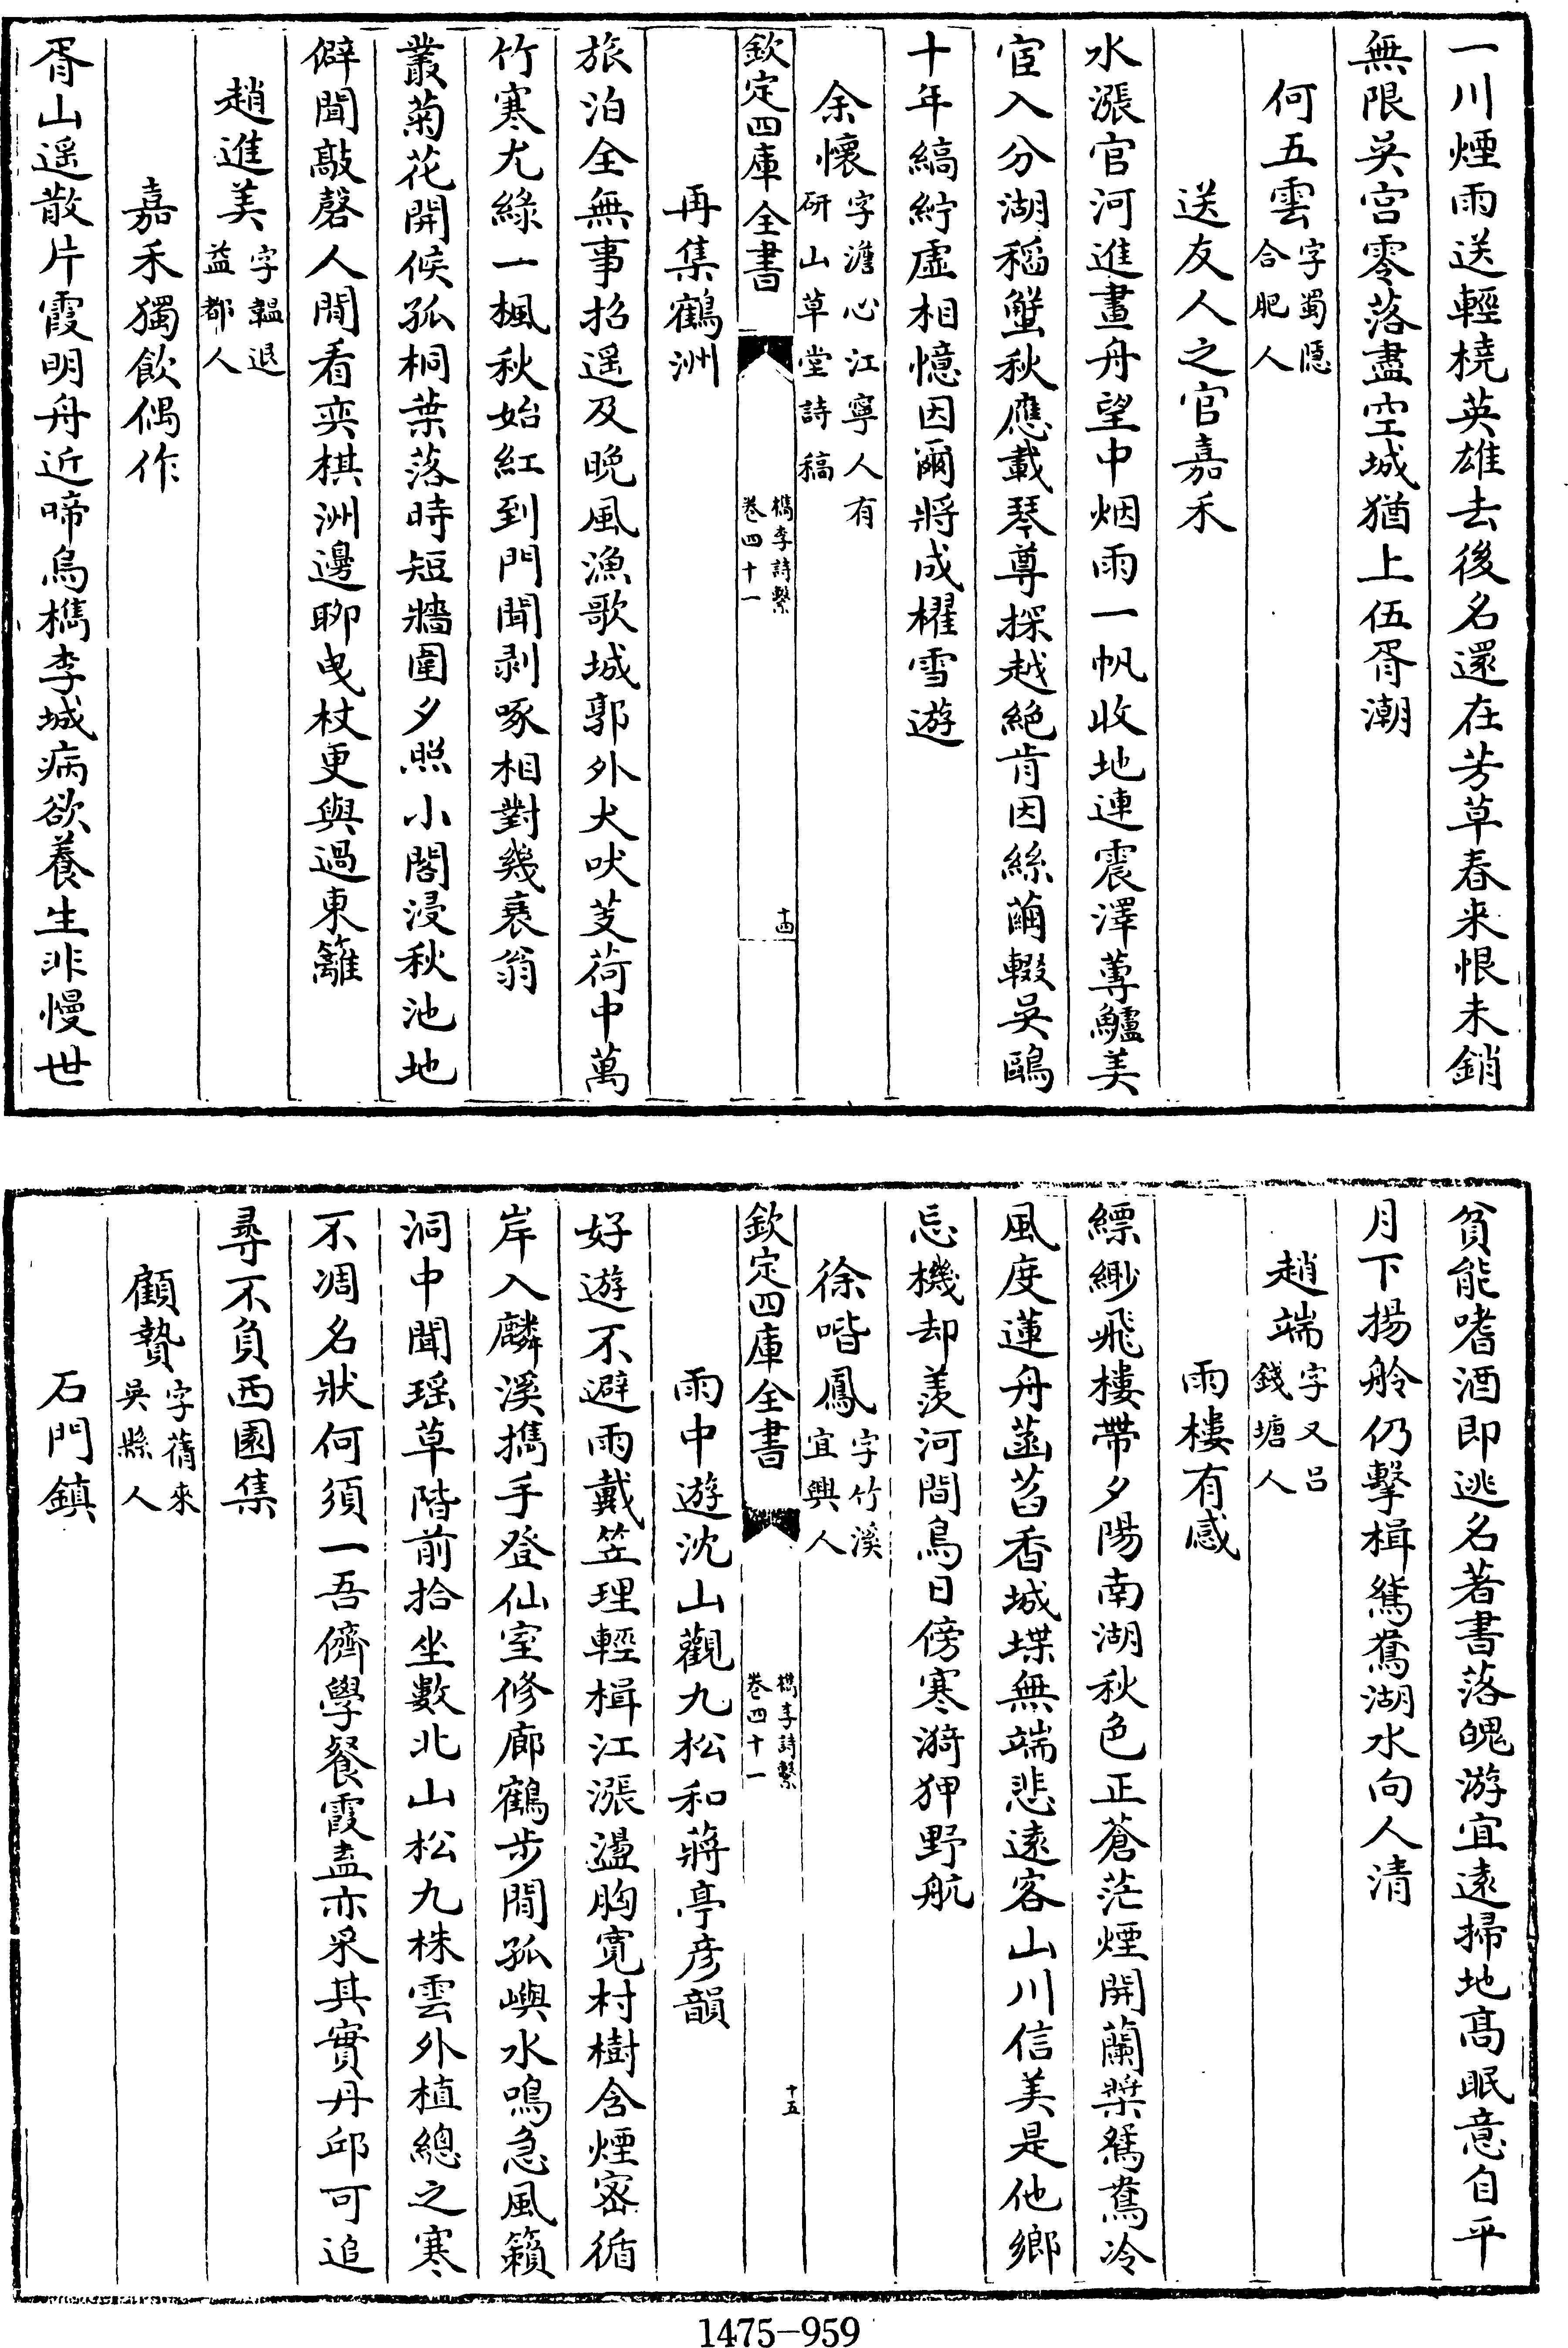 一川煙雨送輕橈英雄去後名還在芳草春来恨未銷
無限吳宫零落盡空城猶上伍胥潮
何五雲字蜀隱合肥人
送友人之官嘉禾
水漲官河進畫舟望中烟雨一帆收地連震澤蓴鱸美
宦入分湖稻蟹秋應載琴尊探越絶肯因絲繭輟吳鷗
十年縞紵虛相憶因爾將成櫂雪遊
余懷字澹心江寧人有研山草堂詩稿
欽定四庫全書
檇李詩繫
卷四十一
十四
再集鶴洲
旅泊全無事招遥及晚風漁歌城郭外犬吠芰荷中萬
竹寒尤綠一楓秋始紅到門聞剥啄相對幾衰翁
叢菊花開候孤桐葉落時短牆圍夕照小閣浸秋池地
僻聞敲磬人閒看奕棋洲邊聊曳杖更與過東籬
趙進美字韞退益都人
嘉禾獨飲偶作
胥山遥散片霞明舟近啼烏檇李城病欲養生非慢世
貧能嗜酒即逃名著書落魄游宜遠掃地髙眠意自平
月下揚舲仍擊楫鴛鴦湖水向人清
趙端字又吕錢塘人
雨樓有感
縹緲飛樓帶夕陽南湖秋色正蒼茫煙開蘭槳鴛鴦冷
風度蓮舟菡萏香城堞無端悲遠客山川信美是他鄉
忘機却羡河間鳥日傍寒漪狎野航
徐喈鳳字竹溪宜興人
欽定四庫全書
檇李詩繫
卷四十一
十五
雨中遊沈山觀九松和蔣亭彦韻
好遊不避雨戴笠理輕楫江漲盪胸寛村樹含煙密循
岸入麟溪攜手登仙室修廊鶴步閒孤嶼水鳴急風籟
洞中聞瑶草階前拾坐數北山松九株雲外植總之寒
不凋名狀何須一吾儕學餐霞盍亦采其實丹邱可追
尋不負西園集
顧贄字蒨來吳縣人
石門鎮
1475-959